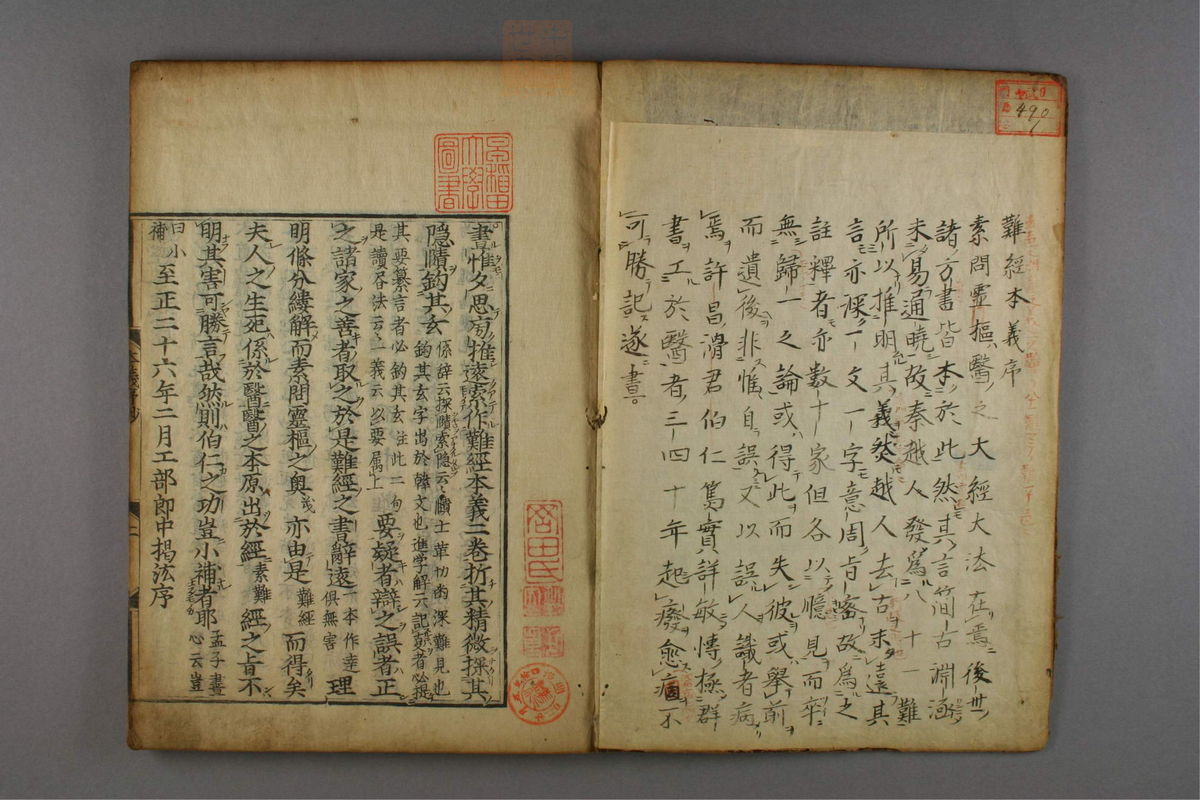 難經本義序
素問靈樞醫之大經大法在焉後世
諸方書皆本於此然其言簡古淵涵
未易通曉故秦越人發爲八十一難
所以推明其義然越人去古未遠其
言亦深一文一字意周旨密故爲之
註釋者亦數十家但各以臆見而卒
無歸一之論或得此而失彼或舉前
而遺後非惟自誤又以誤人識者病
焉許昌滑君伯仁篤實詳敏博極群
書工於醫者三四十年起廢愈痼不
可勝記遂晝
490
早稲田大學圖書
晝惟夕思旁推遠索作難經本義二卷析其精微探其
隠賾鈎其玄
係辞云探賾索隠云云
其要纂言者必鈎其玄註此二句
要疑者辯之誤者正
之諸家之善者取之於是難經之書辭遠
一本作達
俱無害
理
明條分縷解而素問靈樞之奥亦由是
難經
而得矣
夫人之生死係於醫醫之本原出於經
素難
經之旨不
明其害可勝言哉然則伯仁之功豈小補者耶
孟子盡
心云豈
曰小
補
至正二十六年二月工部郎中掲汯序